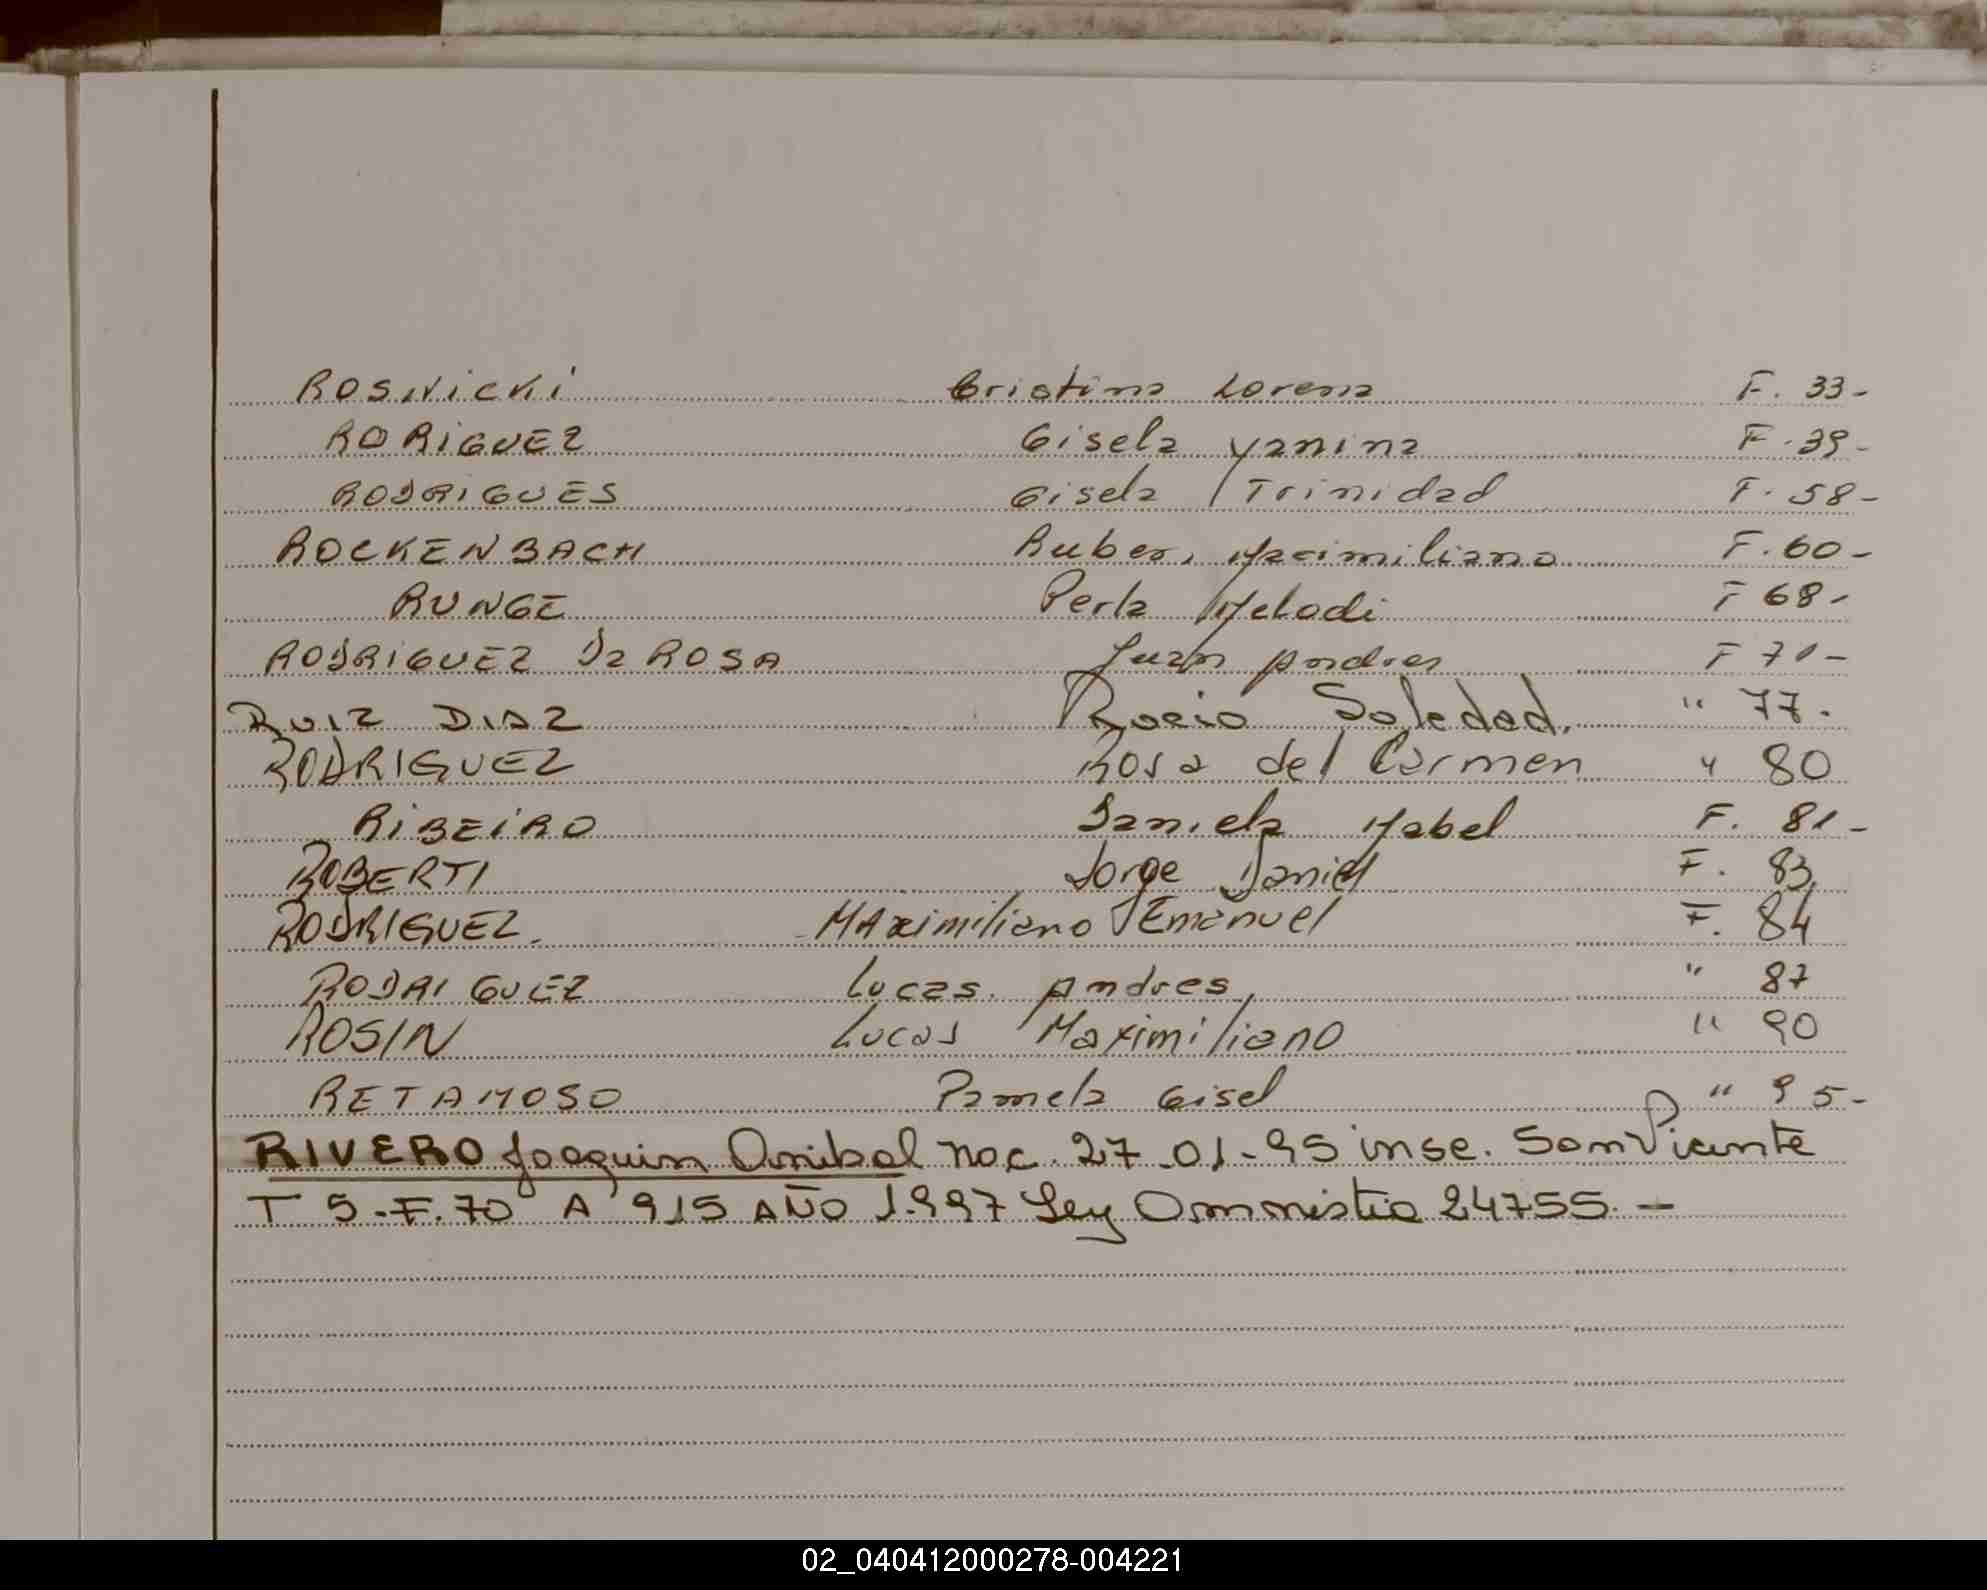 ROSNiCKi Cristina Lorena F. 33-
RORiGUEZ Gisela Yanina F. 39-
RODRiGUES Gisela Trinidad F. 58-
ROCKENBACH Ruben, Maximiliano F. 60-
RUNGE Perla Melodi F 68-
RODRiGUEZ Da ROSA Juan Andres F 71-
RUIZ DIAZ Rocio Soledad. " 77.
RODRIGUEZ Rosa del Carmen " 80
RiBEiRO Daniela Mabel F. 81-
ROBERTI Jorge Daniel F. 83
RODRIGUEZ. MAximiliano Emanuel F. 84
RODRIGUEZ Lucas. Andres " 87
ROSIN Lucas Maximiliano " 90
RETAMOSO Pamela Gisel " 95-
RIVERO Joaquin Anibal nac. 27-01-95 insc. San Vicente
T 5-F.70 A 915 AÑO 1.997 Ley Ammistia 24755. -
02_040412000278-004221